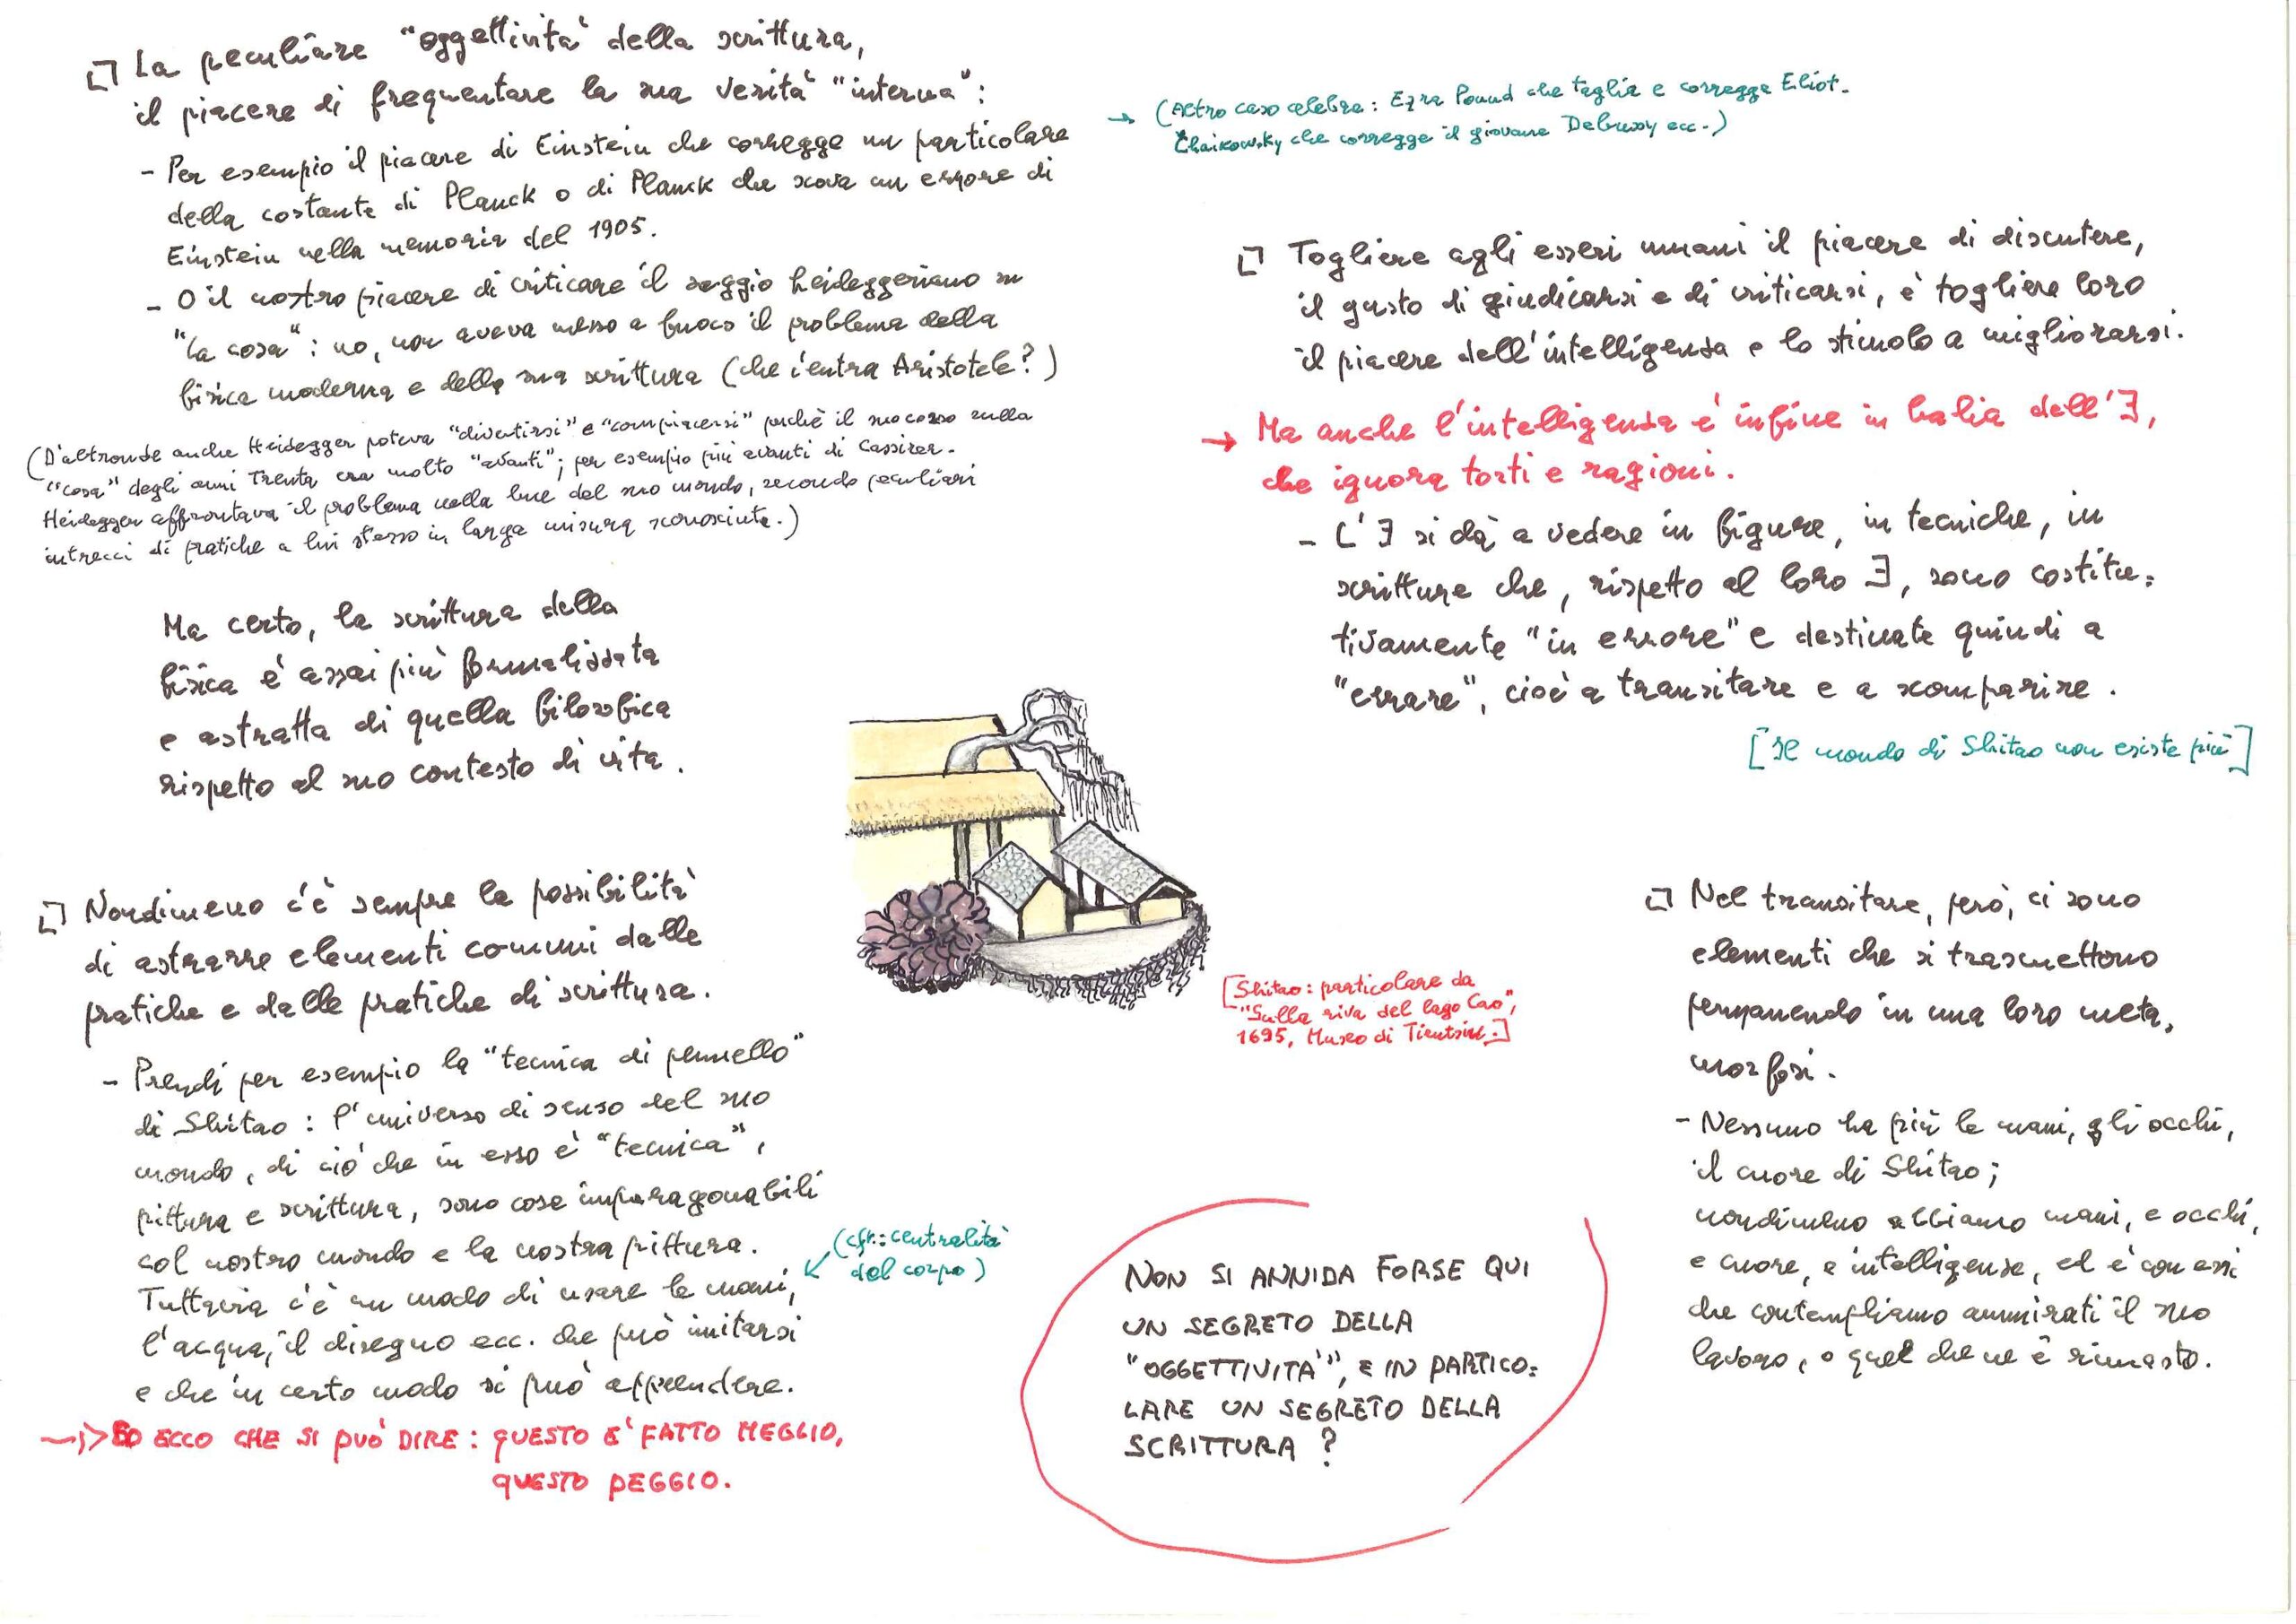 La peculiare "oggettività" della scrittura,
il piacere di frequentare la sua verità "interna":
- Per esempio il piacere di Einstein che corregge un particolare
della costante di Planck o di Planck che scova un errore di
Einstein nella memoria del 1905.
- O il nostro piacere di criticare il saggio heideggeriano su
"la cosa": no, non aveva messo a fuoco il problema della
fisica moderna e della sua scrittura (che c'entra Aristotele?)
(D'altronde anche Heidegger poteva "divertirsi" e "compiacersi" perché il suo corso sulla
"cosa" degli anni Trenta era molto "avanti"; per esempio più avanti di Cassirer.
Heidegger affrontava il problema nella luce del suo mondo, secondo peculiari
intrecci di pratiche a lui stesso in larga misura sconosciute.)
Ma certo, la scrittura della
fisica è assai più formalizzata
e astratta di quella filosofica
rispetto al suo contesto di vita.
Nondimeno c'è sempre la possibilità
di astrarre elementi comuni dalle
pratiche e dalle pratiche di scrittura.
- Prendi per esempio la "tecnica di pennello"
di Shitao: l'universo di senso del suo
mondo, di ciò che in esso è "tecnica",
pittura e scrittura, sono cose imparagonabili
col nostro mondo e la nostra pittura.
Tuttavia c'è un modo di usare le mani,
l'acqua, il disegno ecc. che può imitarsi
e che in certo modo si può apprendere.
(cfr.: centralità
del corpo)
→ ED ECCO CHE SI PUÒ DIRE: QUESTO È FATTO MEGLIO,
QUESTO PEGGIO.
→ (Altro caso celebre: Ezra Pound che taglia e corregge Eliot.
Chaikowsky che corregge il giovane Debussy ecc.)
Togliere agli esseri umani il piacere di discutere,
il gusto di giudicarsi e di criticarsi, è togliere loro
il piacere dell'intelligenza e lo stimolo a migliorarsi.
→ Ma anche l'intelligenza è infine in balia dell'∃,
che ignora torti e ragioni.
- L'∃ si dà a vedere in figure, in tecniche, in
scritture che, rispetto al loro ∃, sono costitu=
tivamente "in errore" e destinate quindi a
"errare", cioè a transitare e a scomparire.
[Il mondo di Shitao non esiste più]
[Shitao: particolare da
"Sulla riva del lago Cao",
1695, Museo di Tientsin.]
Nel transitare, però, ci sono
elementi che si trasmettono
permanendo in una loro meta,
morfosi.
- Nessuno ha più le mani, gli occhi,
il cuore di Shitao;
nondimeno abbiamo mani, e occhi,
e cuore, e intelligenze, ed è con essi
che contempliamo ammirati il suo
lavoro, o quel che ne è rimasto.
NON SI ANNIDA FORSE QUI
UN SEGRETO DELLA
"OGGETTIVITÀ", E IN PARTICO=
LARE UN SEGRETO DELLA
SCRITTURA?